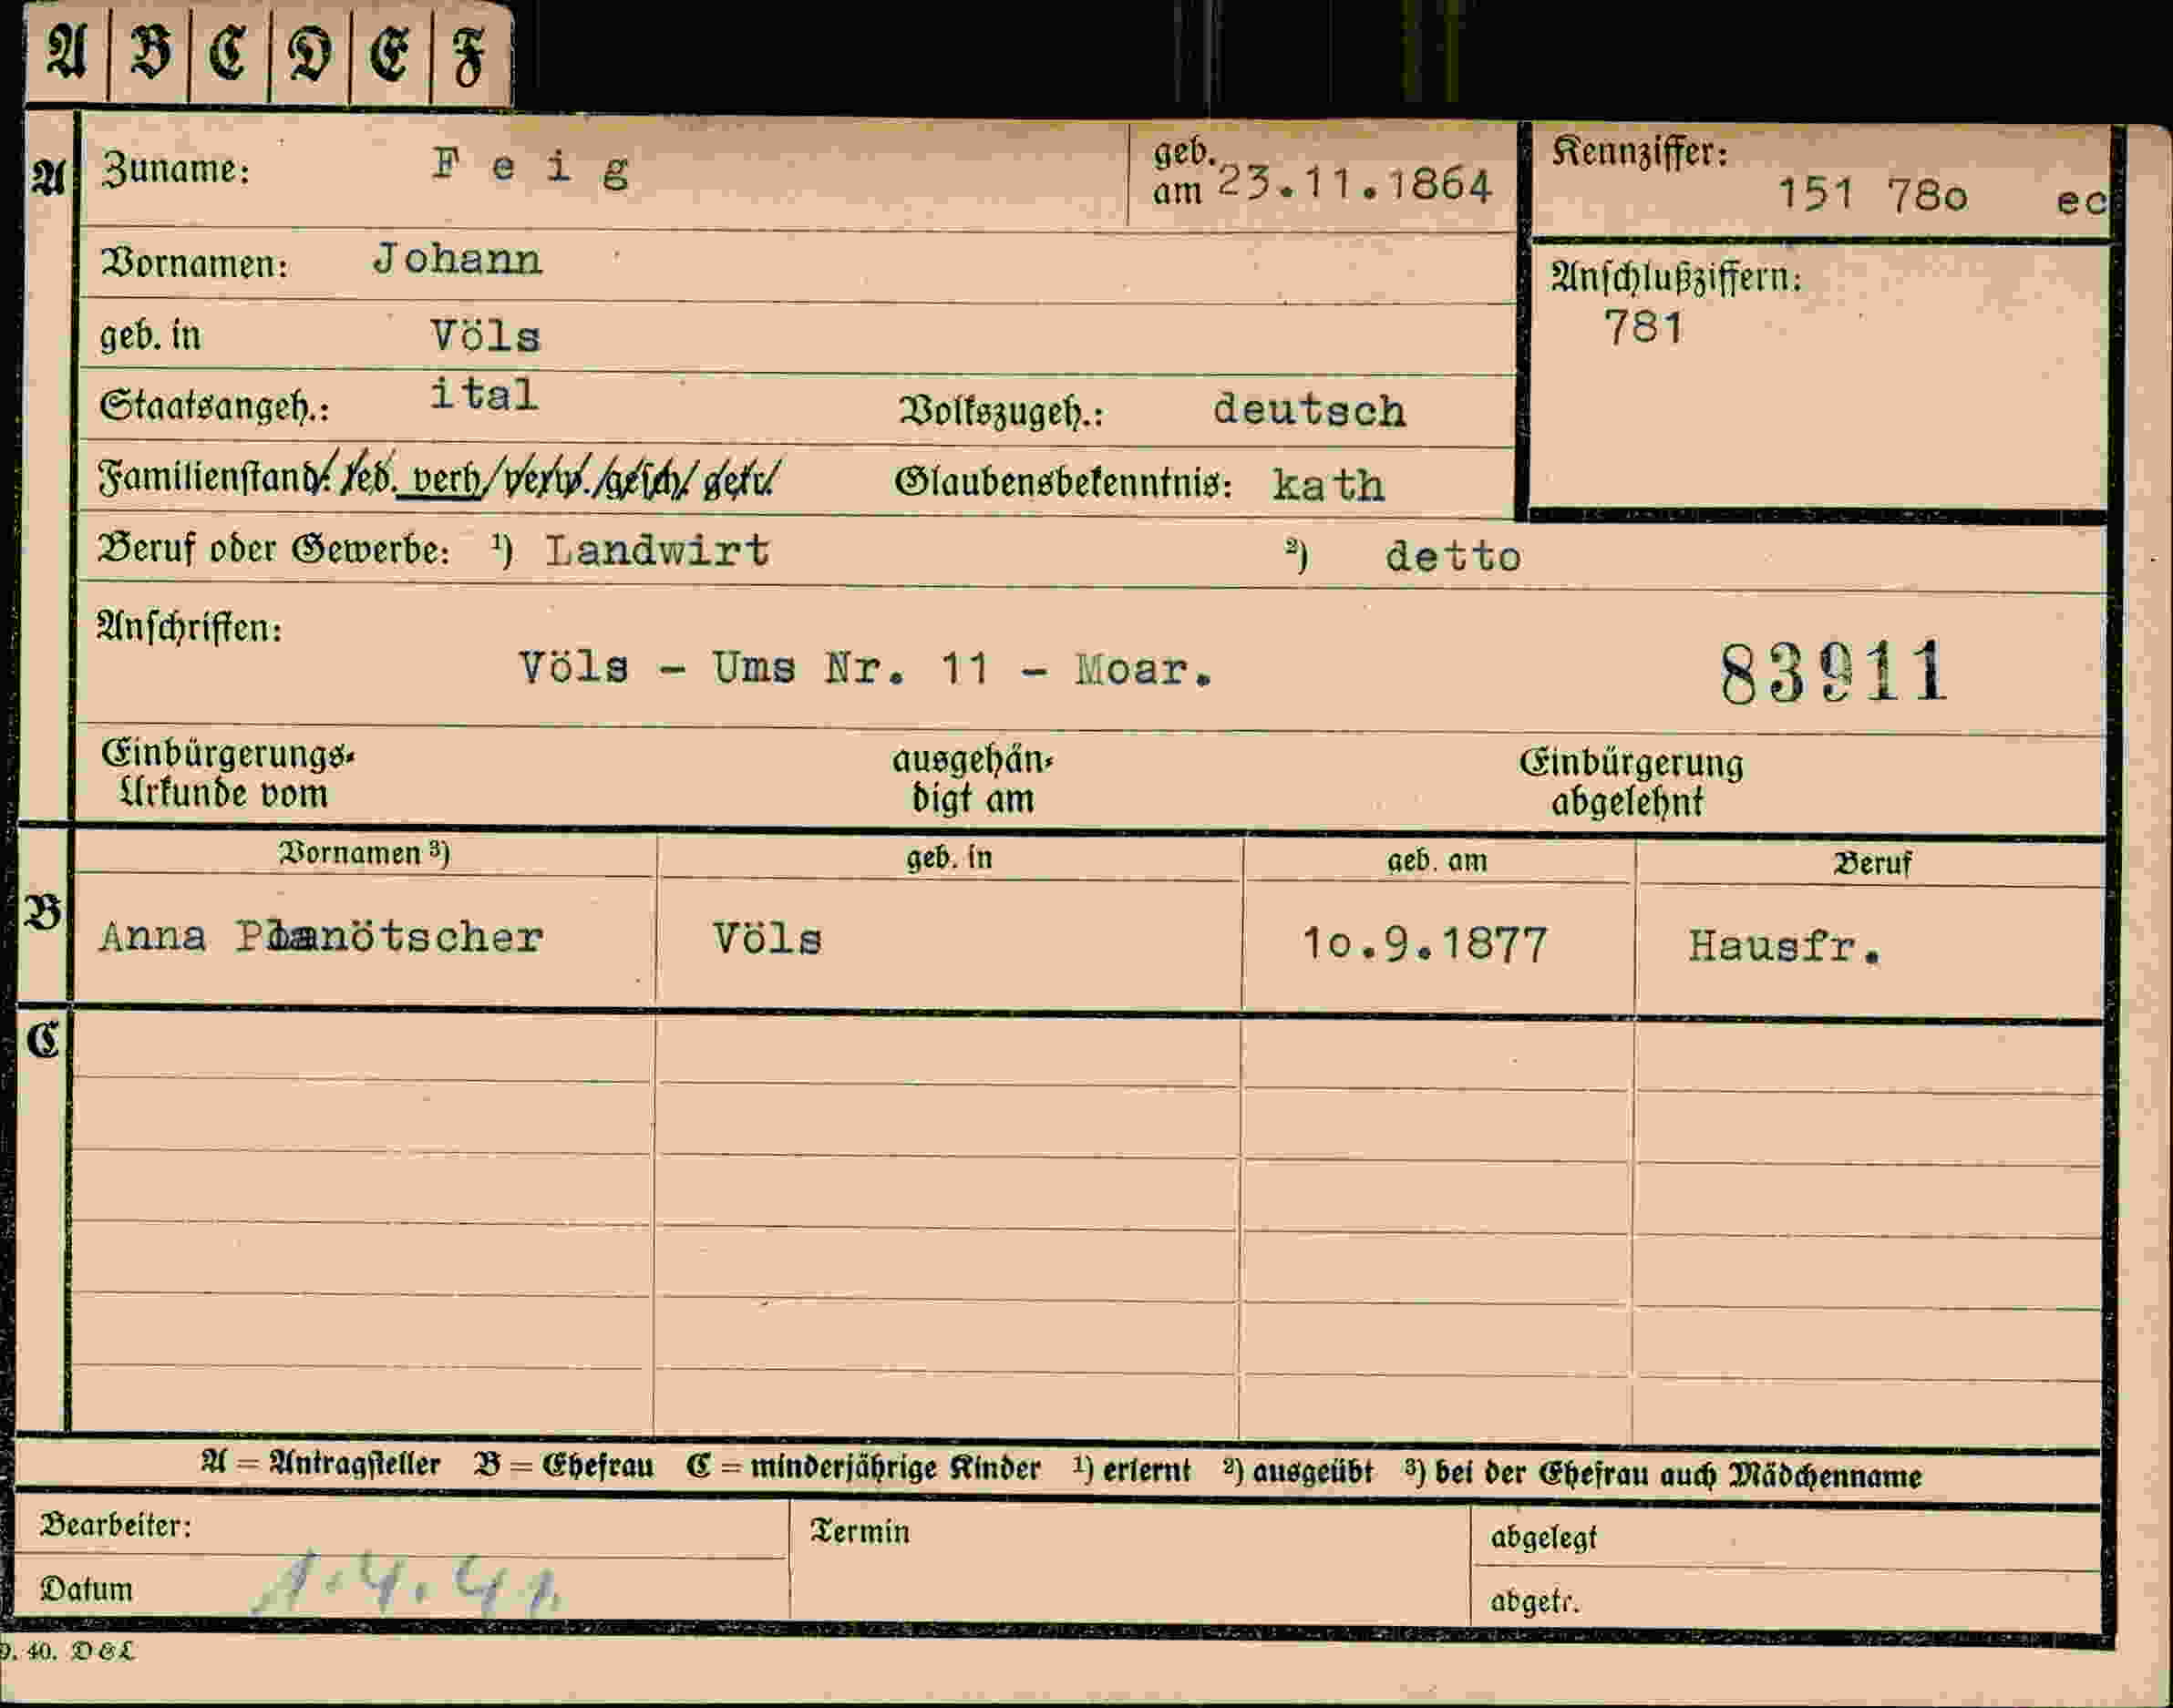 A B C D E F
A Zuname: Feig geb. am 23.11.1864 Kennziffer: 151 78o ec
Vornamen: Johann Anschlußziffern: 781
geb. in Völs
Staatsangeh.: ital Volkszugeh.: deutsch
Familienstand: led. verh. verw. gesch. getr. Glaubensbekenntnis: kath
Beruf oder Gewerbe: ¹) Landwirt ²) detto
Anschriften:
Völs - Ums Nr. 11 - Moar. 83911
Einbürgerungs- ausgehän- Einbürgerung
Urkunde vom digt am abgelehnt
Vornamen ³) geb. in geb. am Beruf
B Anna Völs 1o.9.1877 Hausfr.
C
A = Antragsteller B = Ehefrau C = minderjährige Kinder ¹) erlernt ²) ausgeübt ³) bei der Ehefrau auch Mädchenname
Bearbeiter: Termin abgelegt
Datum 1.4.41. abgetr.
9. 40. D&L